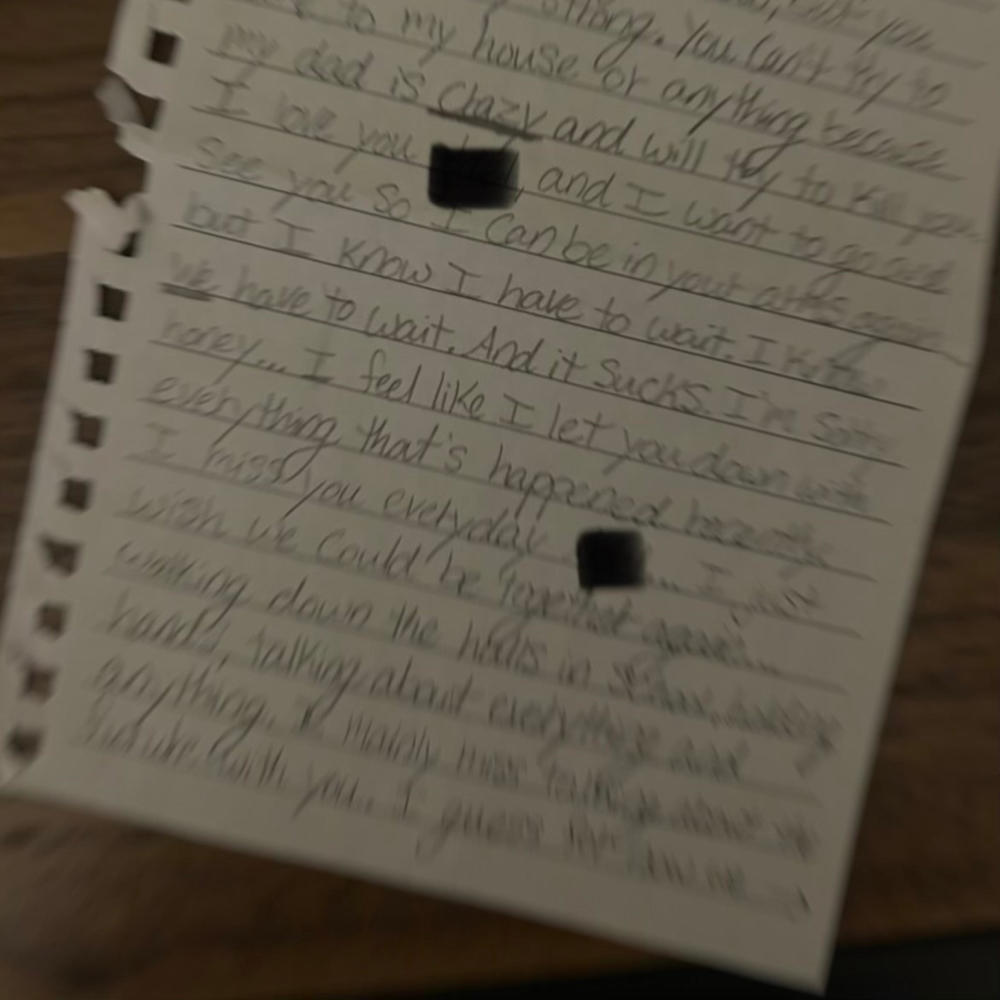 strong. You can't try to
to my house or anything because
my dad is crazy and will try to kill you.
I love you, and I want to go and
see you so I can be in your arms again
but I know I have to wait. I know
we have to wait. And it sucks. I'm sorry
honey... I feel like I let you down with
everything that's happened recently
I miss you everyday ... I just
wish we could be together again...
walking down the halls in school, holding
hands, talking about everything and
anything. I mainly miss talking about
future with you. I guess for now we